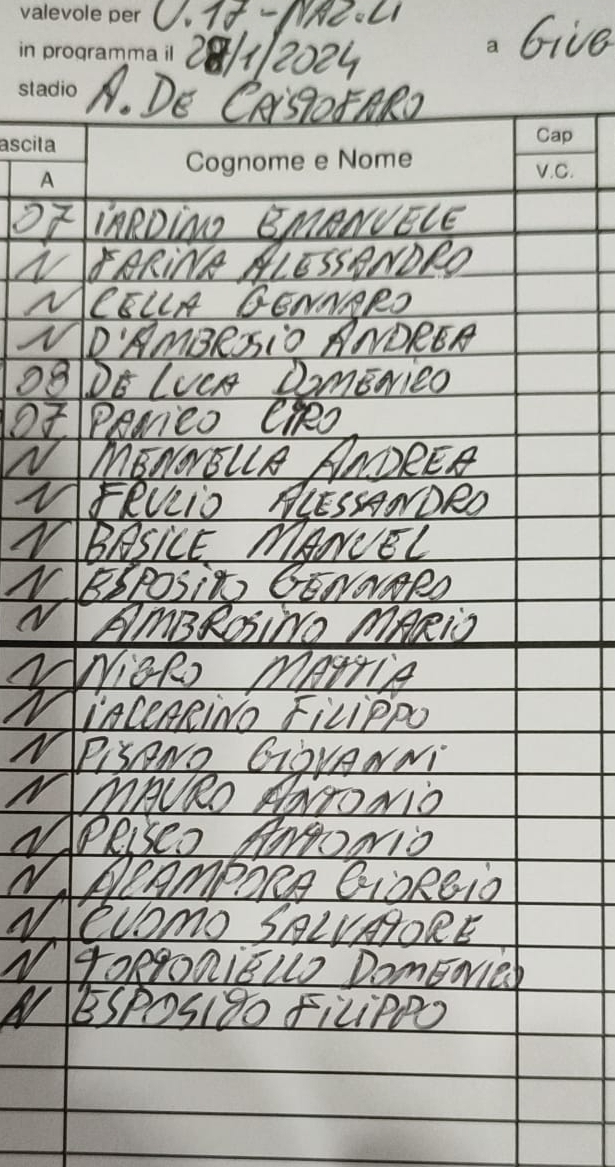 valevole per U.17 - NAZ.LI
in programma il 28/1/2024 a GIUG
stadio A. DE CRISTOFARO
ascita Cognome e Nome Cap
A V.C.
07 IARDINO EMANUELE
N FARINA ALESSANDRO
N CELLA GENNARO
N D'AMBROSIO ANDREA
08 DE LUCA DOMENICO
07 PANICO CIRO
N MENNELLA ANDREA
N FRULIO ALESSANDRO
N BASILE MANUEL
N ESPOSITO GENNARO
N AMBROSINO MARIO
N NIGRO MATTIA
N IACCARINO FILIPPO
N PISANO GIOVANNI
N MAURO ANTONIO
N PRISCO ANTONIO
N APAMPORA GIORGIO
N CUOMO SALVATORE
N TORTORIELLO DOMENICO
N ESPOSITO FILIPPO